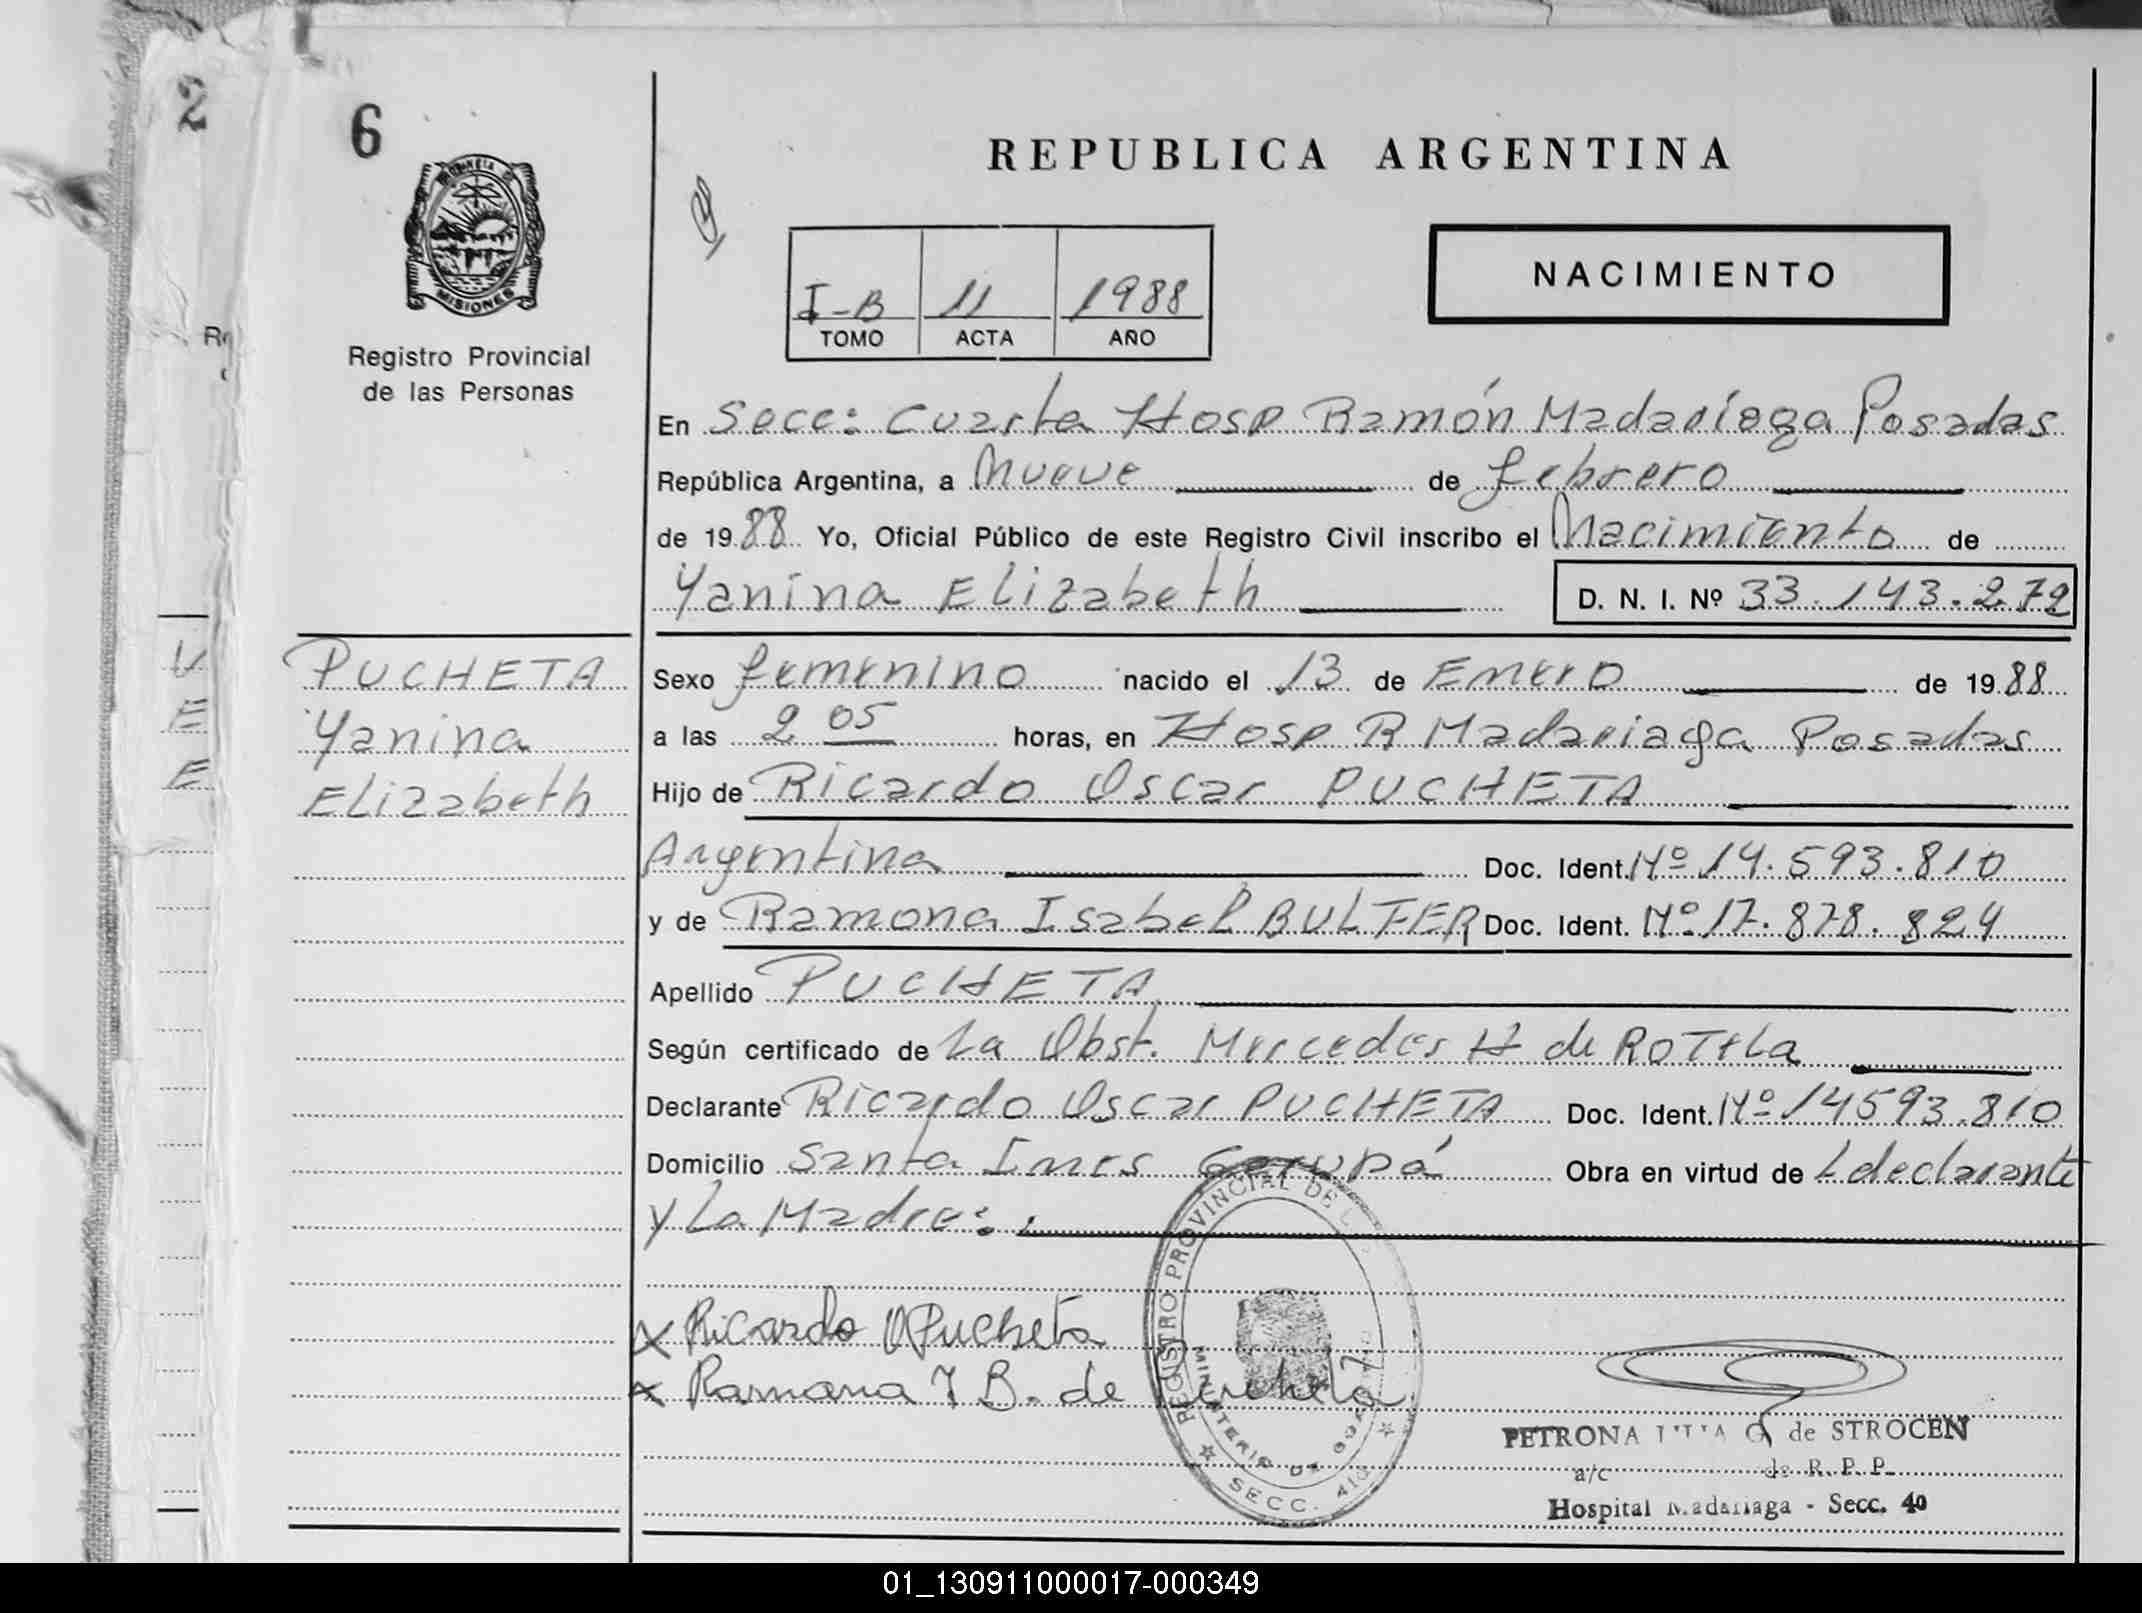 2
6
PROVINCIA DE
MISIONES
Registro Provincial
de las Personas
REPUBLICA ARGENTINA
I-B 11 1988
TOMO ACTA AÑO
NACIMIENTO
En Secc: Cuarta Hosp Ramón Madariaga Posadas
República Argentina, a Nueve de febrero
de 1988 Yo, Oficial Público de este Registro Civil inscribo el Nacimiento de
Yanina Elizabeth D. N. I. Nº 33.143.272
PUCHETA
Yanina
Elizabeth
Sexo femenino nacido el 13 de Enero de 1988
a las 2 05 horas, en Hosp R Madariaga Posadas
Hijo de Ricardo Oscar PUCHETA
Argentina Doc. Ident. Nº 14.593.810
y de Ramona Isabel BULFER Doc. Ident. Nº 17.878.824
Apellido PUCHETA
Según certificado de La Obst. Mercedes H de ROTELA
Declarante Ricardo Oscar PUCHETA Doc. Ident. Nº 14593.810
Domicilio Santa Ines Garupá Obra en virtud de L declarante
y La Madre:
Ricardo O Pucheta
Ramona I B. de Pucheta
REGISTRO PROVINCIAL DE
MINISTERIO DE
SECC. 4ta
PETRONA G de STROCEN
a/c de R. P. P.
Hospital Madariaga - Secc. 4a
01_130911000017-000349